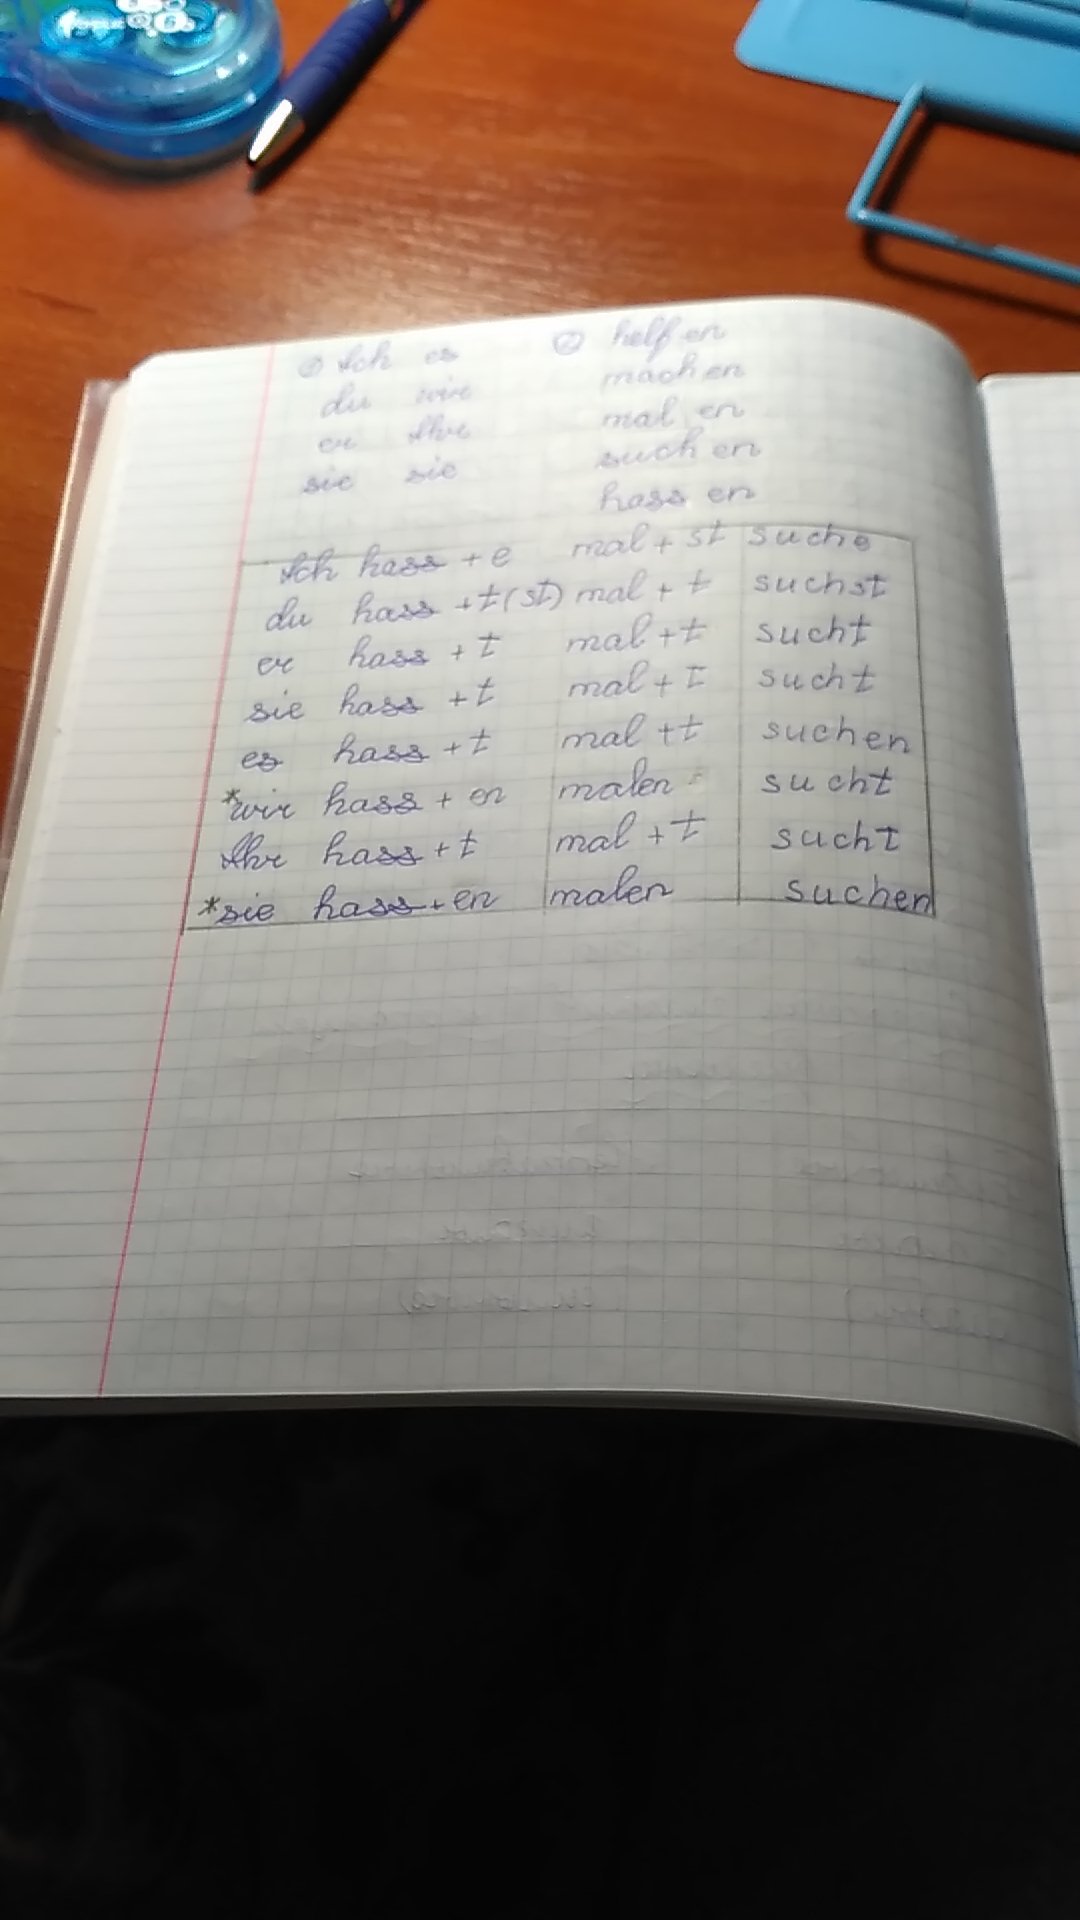 ① Ich es ② helfen
du wir machen
er Ihr mal en
sie sie such en
hass en
Ich hass + e mal + st suche
du hass + t(st) mal + t suchst
er hass + t mal + t sucht
sie hass + t mal + t sucht
es hass + t mal + t suchen
*wir hass + en malen sucht
Ihr hass + t mal + t sucht
*sie hass + en malen suchen